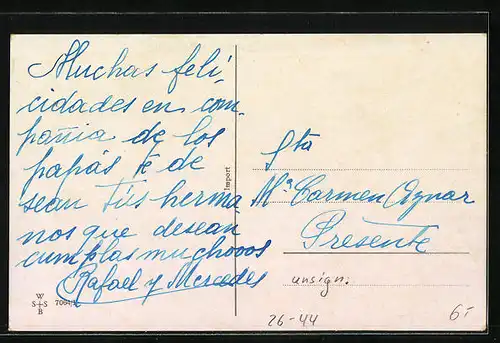 Muchas feli-
cidades en com-
pañia de los
papás te de
sean tus herma,
nos que desean
cumplas muchooos
Rafael y Mercedes
W
S+S
B
Import
Sta
Mª Carmen Aznar
Presente
unsign.
26-44
6,-